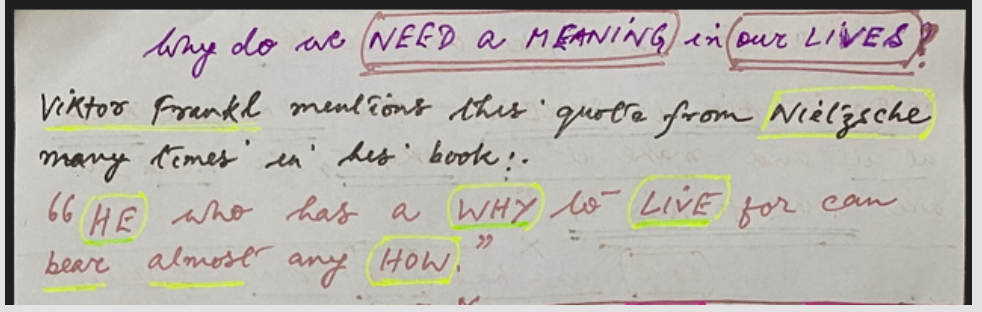 Why do we NEED a MEANING in our LIVES?
Viktor Frankl mentions this quote from Nietzsche
many times in his book:.
“HE who has a WHY to LIVE for can
bear almost any HOW.”